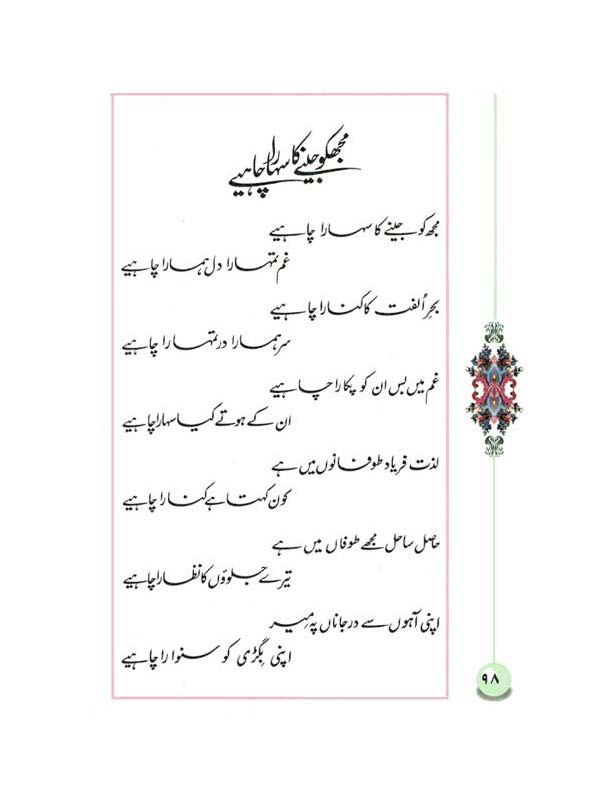 مجھکو جینے کا سہارا چاہیے
مجھ کو جینے کا سہارا چاہیے
غم تمہارا دل ہمارا چاہیے
بحرِ اُلفت کا کنارا چاہیے
سر ہمارا در تمہارا چاہیے
غم میں بس ان کو پکارا چاہیے
ان کے ہوتے کیا سہارا چاہیے
لذت فریاد طوفانوں میں ہے
کون کہتا ہے کنارا چاہیے
حاصل ساحل مجھے طوفاں میں ہے
تیرے جلوؤں کا نظارا چاہیے
اپنی آہوں سے در جاناں پہ مِیر
اپنی بگڑی کو سنوارا چاہیے
۹۸